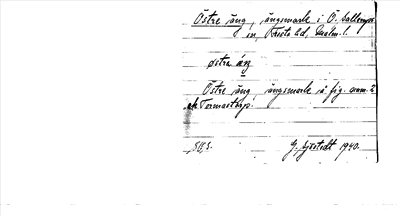 Östre äng, ängsmark i Ö. Sallerups
sn, Frosta hd, Malm. l.
östra äng
Östre äng, ängsmark i fig. num. 2
SU5.
G. Sjöstedt 1940.